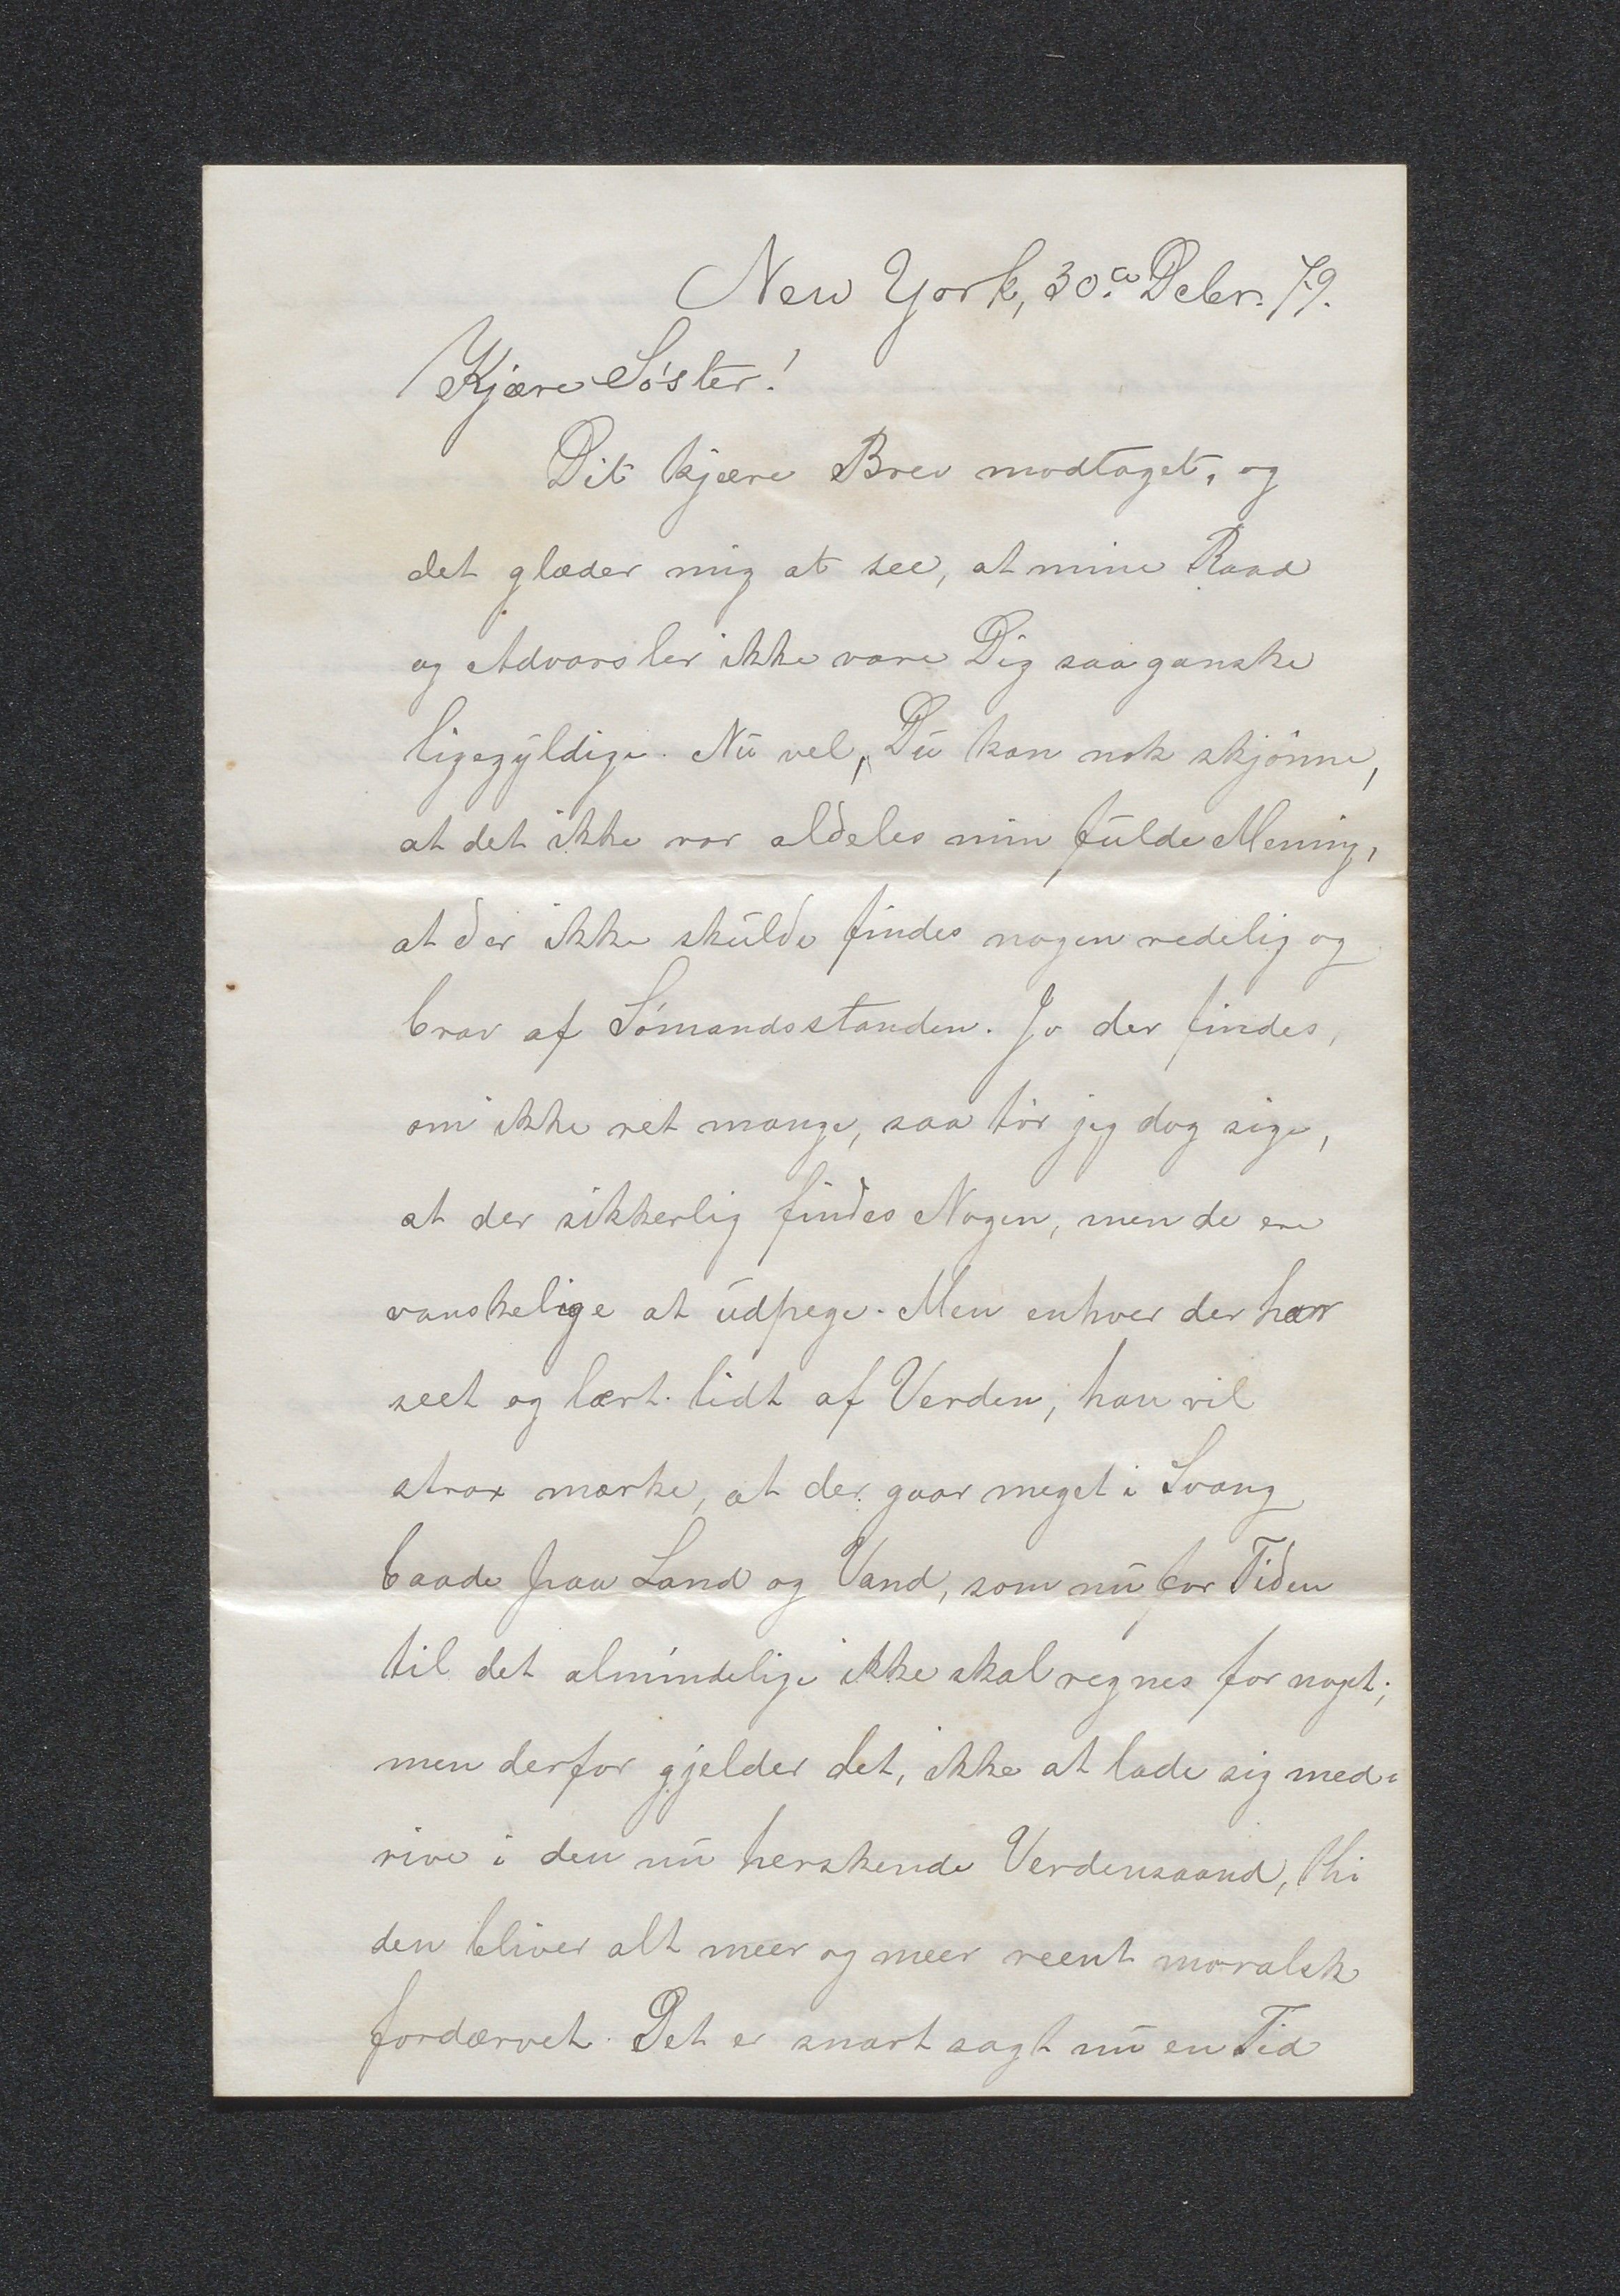 New York, 30.e Debr. 79.
Kjære Söster!
Dit kjære Brev modtaget, og
det glæder mig at see, at mine Raad
og Advarsler ikke vare Dig saa ganske
ligegyldige. Nu vel, Du kan nok skjönne,
at det ikke var aldeles min fulde Mening,
at der ikke skulde findes nogen redelig og
brav af Sömandsstanden. Jo der findes,
om ikke ret mange, saa tör jeg dog sige,
at der sikkerlig findes Nogen, men de ere
vanskelige at udpege. Men enhver der har
seet og lært lidt af Verden, han vil
strax mærke, at der gaar meget i Svang
baade paa Land og Vand, som nu for Tiden
til det almindelige ikke skal regnes for noget;
men derfor gjelder det, ikke at lade sig med-
rive i den nu herskende Verdensaand, thi
den bliver alt meer og meer reent moralsk
fordærvet. Det er snart sagt nu en Tid